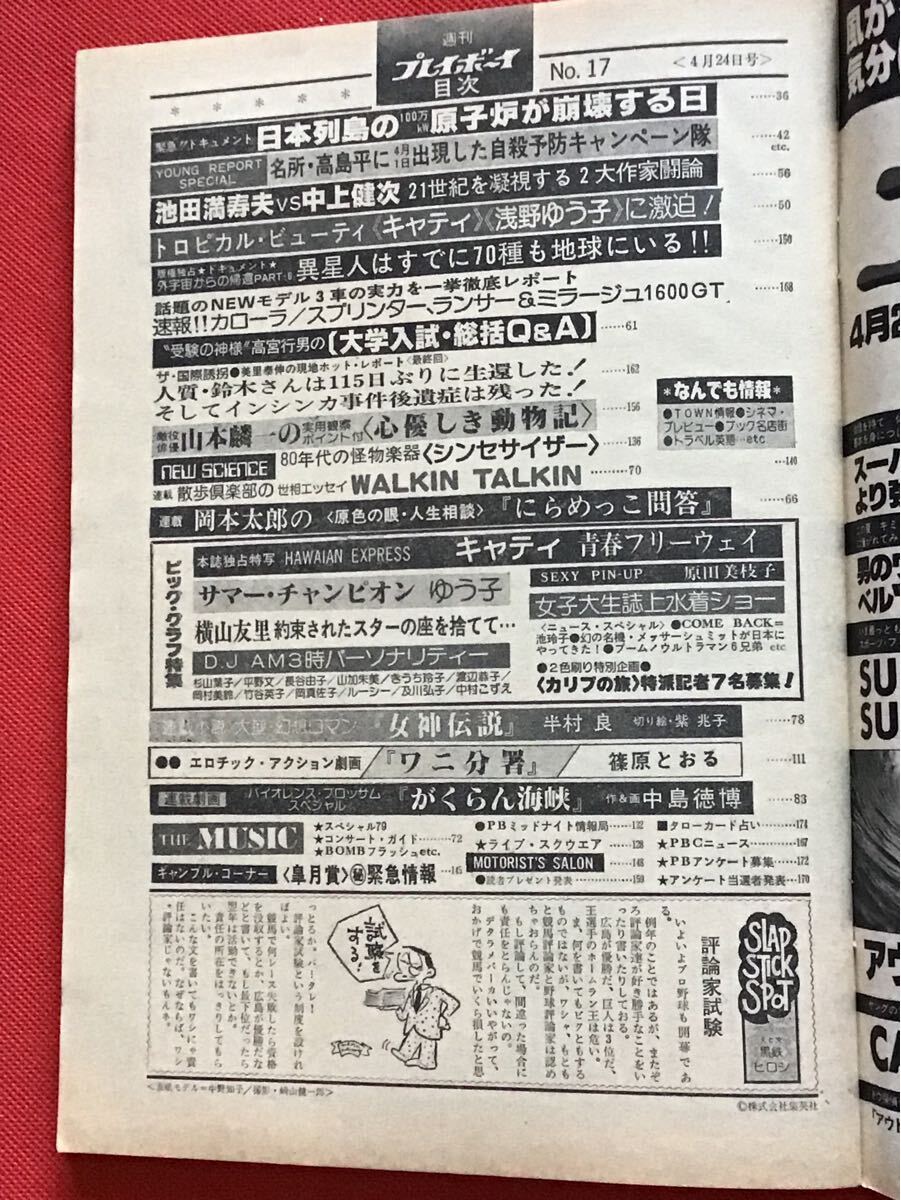 週刊
プレイボーイ
目次
No. 17
<4月24日号>
緊急!!ドキュメント 日本列島の100万kw原子炉が崩壊する日 ……36
YOUNG REPORT SPECIAL 名所・高島平に4月1日出現した自殺予防キャンペーン隊 ……42 etc.
池田満寿夫VS中上健次 21世紀を凝視する2大作家闘論 ……56
トロピカル・ビューティ《キャティ》《浅野ゆう子》に激迫! ……50
版権独占★ドキュメント★
外宇宙からの帰還PART-II 異星人はすでに70種も地球にいる!! ……150
話題のNEWモデル3車の実力を一挙徹底レポート
速報!!カローラ/スプリンター、ランサー&ミラージュ1600GT ……168
"受験の神様"高宮行男の〔大学入試・総括Q&A〕 ……61
ザ・国際誘拐●美里泰伸の現地ホット・レポート<最終回>
人質・鈴木さんは115日ぶりに生還した!
そしてインシンカ事件後遺症は残った! ……162
敵役俳優 山本麟一の実用観察ポイント付〈心優しき動物記〉 ……156
NEW SCIENCE 80年代の怪物楽器〈シンセサイザー〉 ……136
連載 散歩倶楽部の世相エッセイ WALKIN TALKIN ………70
*なんでも情報*
●TOWN情報●シネマ・
プレビュー●ブック名店街
●トラベル英語…etc
…140
連載 岡本太郎の〈原色の眼・人生相談〉『にらめっこ問答』 ……66
ビッグ・グラフ特集
本誌独占特写 HAWAIAN EXPRESS キャティ 青春フリーウェイ
サマー・チャンピオン ゆう子
横山友里 約束されたスターの座を捨てて…
D.J AM3時パーソナリティー
杉山葉子/平野文/長谷由子/山加朱美/きうち玲子/渡辺恭子/
岡村美鈴/竹谷英子/岡真佐子/ルーシー/及川弘子/中村こずえ
SEXY PIN-UP 原田美枝子
女子大生誌上水着ショー
<ニュース・スペシャル>●COME BACK=
池玲子●幻の名機・メッサーシュミットが日本に
やってきた!●ブーム!ウルトラマン6兄弟 etc
●2色刷り特別企画●
〈カリブの旅〉特派記者7名募集!
連載小説 大型・幻想ロマン 『女神伝説』 半村 良 切り絵・紫 兆子 ……78
●● エロチック・アクション劇画 『ワニ分署』 篠原とおる ……111
連載劇画 バイオレンス・ブロッサム スペシャル 『がくらん海峡』 作&画 中島徳博 ……83
THE MUSIC
★スペシャル79
★コンサート・ガイド……72
★BOMBフラッシュetc.
ギャンブル・コーナー 〈皐月賞〉㊙緊急情報 ……145
●PBミッドナイト情報局……132
★ライブ・スクウエア ……128
MOTORIST'S SALON ……148
●読者プレゼント発表………159
■タローカード占い………174
★PBCニュース………167
★PBアンケート募集……172
★アンケート当選者発表…170
SLAP STICK SPOT
え と 文 黒鉄ヒロシ
評論家試験
いよいよプロ野球も開幕であ
る。
例年のことではあるが、またぞ
ろ評論家達が好き勝手なことをい
ったり書いたりしておる。
広島が優勝だ、巨人は3位だ、
王選手のホームラン王は危い。
ま、何を書いてもビクともする
ものではないが、ワシャ、もとも
と競馬評論家と野球評論家は認め
ちゃおらんのだ。
もし評論して、間違った場合に
も責任をとらんじゃないの。
デタラメバーカいいやがって、
おかげで競馬でいくら損したと思
っとるか。バータレ!
評論家試験という制度を設けれ
ばよい。
競馬で何レース失敗したら資格
を没収するとか、広島が優勝だな
どと書いて、もし最下位だったら
翌年は活動できないとか。
責任の所在をはっきりしてもら
いたい。
こんな文を書いてもワシにゃ責
任はないのだ。なぜならば、ワシ
ャ評論家じゃないもんネ。
試験をする!
<表紙モデル=中野知子/撮影・崎山健一郎>
©株式会社集英社
風が
気分
4月2
スーパ
より強
男の
ベル
SU
SU
アウ
CA
「アウト